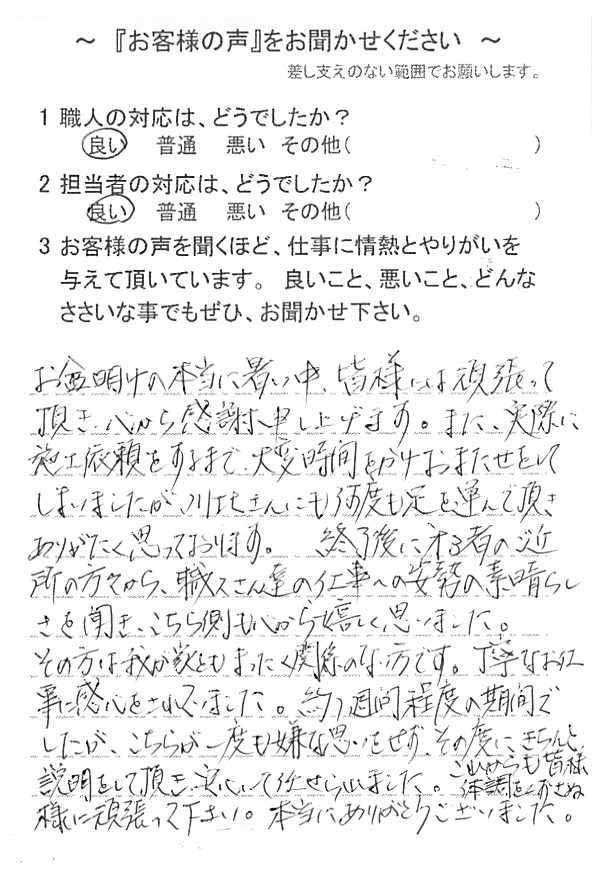 ～ 『お客様の声』をお聞かせください ～
差し支えのない範囲でお願いします。
1 職人の対応は、どうでしたか？
良い 普通 悪い その他( )
2 担当者の対応は、どうでしたか？
良い 普通 悪い その他( )
3 お客様の声を聞くほど、仕事に情熱とやりがいを
与えて頂いています。 良いこと、悪いこと、どんな
ささいな事でもぜひ、お聞かせ下さい。
お盆明けの本当に暑い中、皆様には頑張って
頂き、心から感謝申し上げます。また、実際に
施工依頼をするまで、大変時間をかけおまたせをして
しまいましたが、さんにも何度も足を運んで頂き
ありがたく思っております。 終了後に、ある者の近
所の方々から、職人さん達の仕事への姿勢の素晴らし
さを聞き、こちら側も心から嬉しく思いました。
その方は我が家ともまったく関係のない方です。丁寧なお仕
事に感心をされていました。約1週間程度の期間で
したが、こちらが一度も嫌な思いをせず、その度にきちんと
説明をして頂き、安心して任せられました。 これからも皆様
体調をくずさぬ
様に頑張って下さい。本当にありがとうございました。